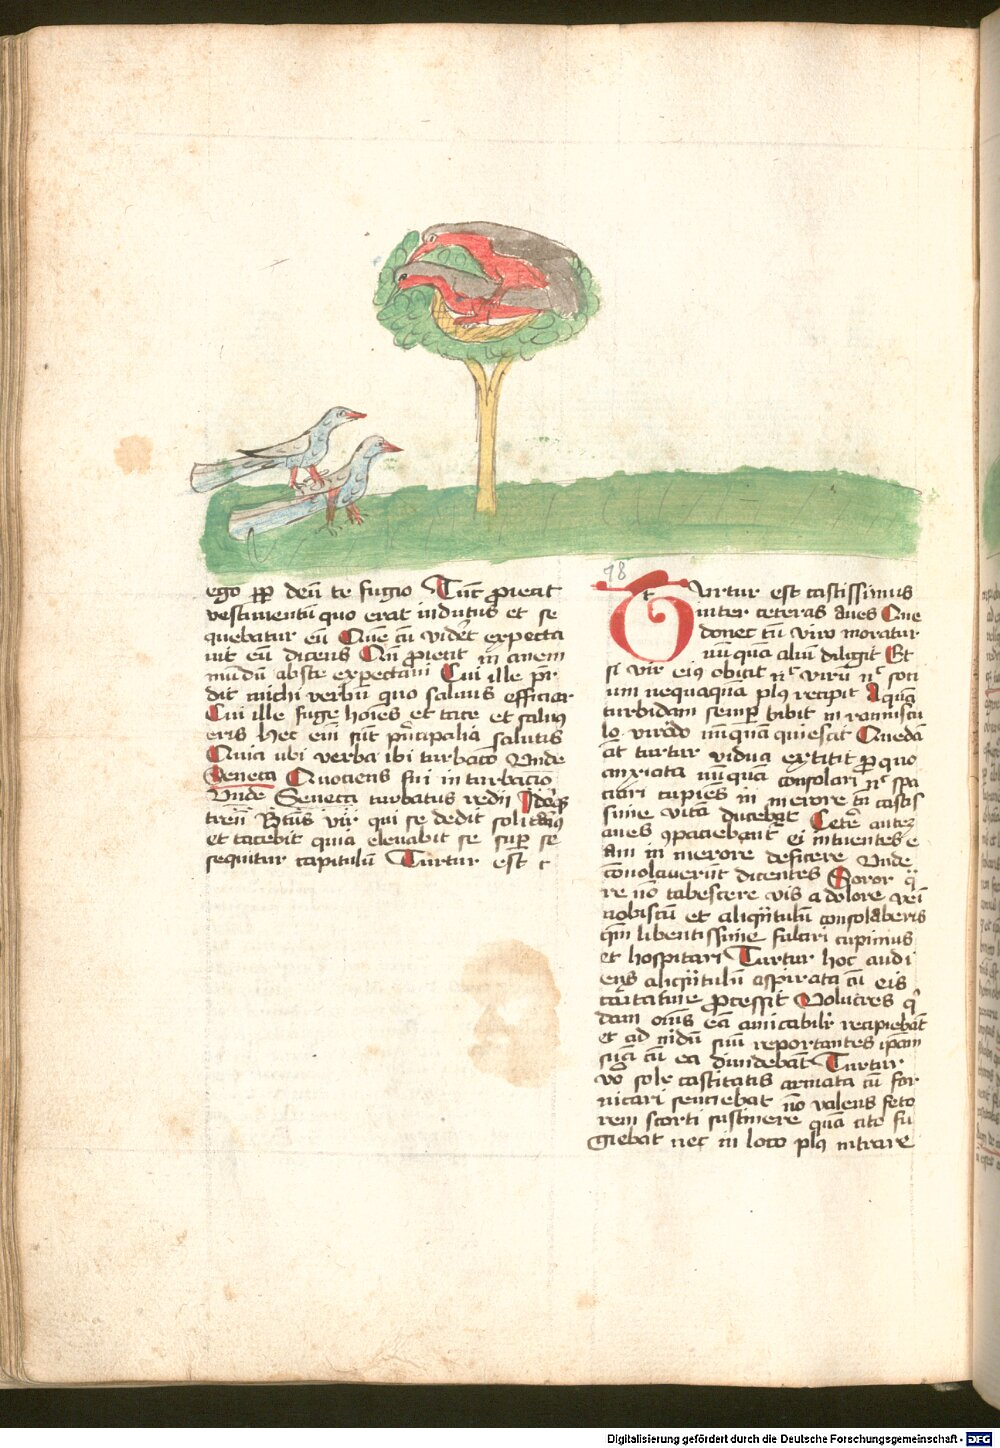 ego ꝓpt̄ deū te fugio Tūc ꝓiecit
vestimentū quo erat indutus et se
quebatur eū Quē cū viderꝫ expecta
uit eū dicens Cū ꝓiecit in amem
mūdū abs te expectaui Cui ille pr̄
dic michi verbū quo saluus efficiar
Cui ille fuge hoīes et tace et saluꝰ
eris Hec eī sūt pⁱncipalia salutis
Quia ubi verba ibi turbacō Unde
Seneca Quociens fui in turbacōe
Vnde Seneca turbatus redii Idcirco
treñ Bt̄us vir qui se dedit solitariꝰ
et tacebit quia eleuabit se suꝑ se
sequitur capitulū Turtur est c
78
Turtur est castissimus
inter ceteras aues Que
donec cū viro moratur
nūquā aliū diligit Et
si vir eiꝰ obierit nᶜ virū nᶜ soci
um nequaquā plꝰ recipit Aquā
turbidam semꝑ bibit in ramuscu
lo virido nūquā quiescit Quedā
at̄ turtur vidua extitit ꝓ quo
anxiata nūquā consolari nᶜ spa
ciari cupiēs in merore tn̄ castis
sime vitā ducebat Cetere autē
aues ꝯpaciebant̄ ei intuentes e
am in merore deficere Unde
conuolauerūt dicentes Soror qͣ
re nō tabescere vis a dolore veī
nobiscū et aliqn̄tulū consolaberis
qm̄ libentissime famulari cupimus
et hospitari Turtur hoc audi
ens aliqn̄tulū aspirata cū eis
caritatiue ꝓcessit Volucres qͥ
dam oīes eā amicabilr̄ recipiebāt
et ad nidū suū reportantes ipām
sua cū ea diuidebāt Turtur
vo sole castitatis armata cū for
nicari senciebat nō valens feto
rem scorti sustinere quā cito fu
giebat nec in loco plꝰ intrare
Digitalisierung gefördert durch die Deutsche Forschungsgemeinschaft - DFG